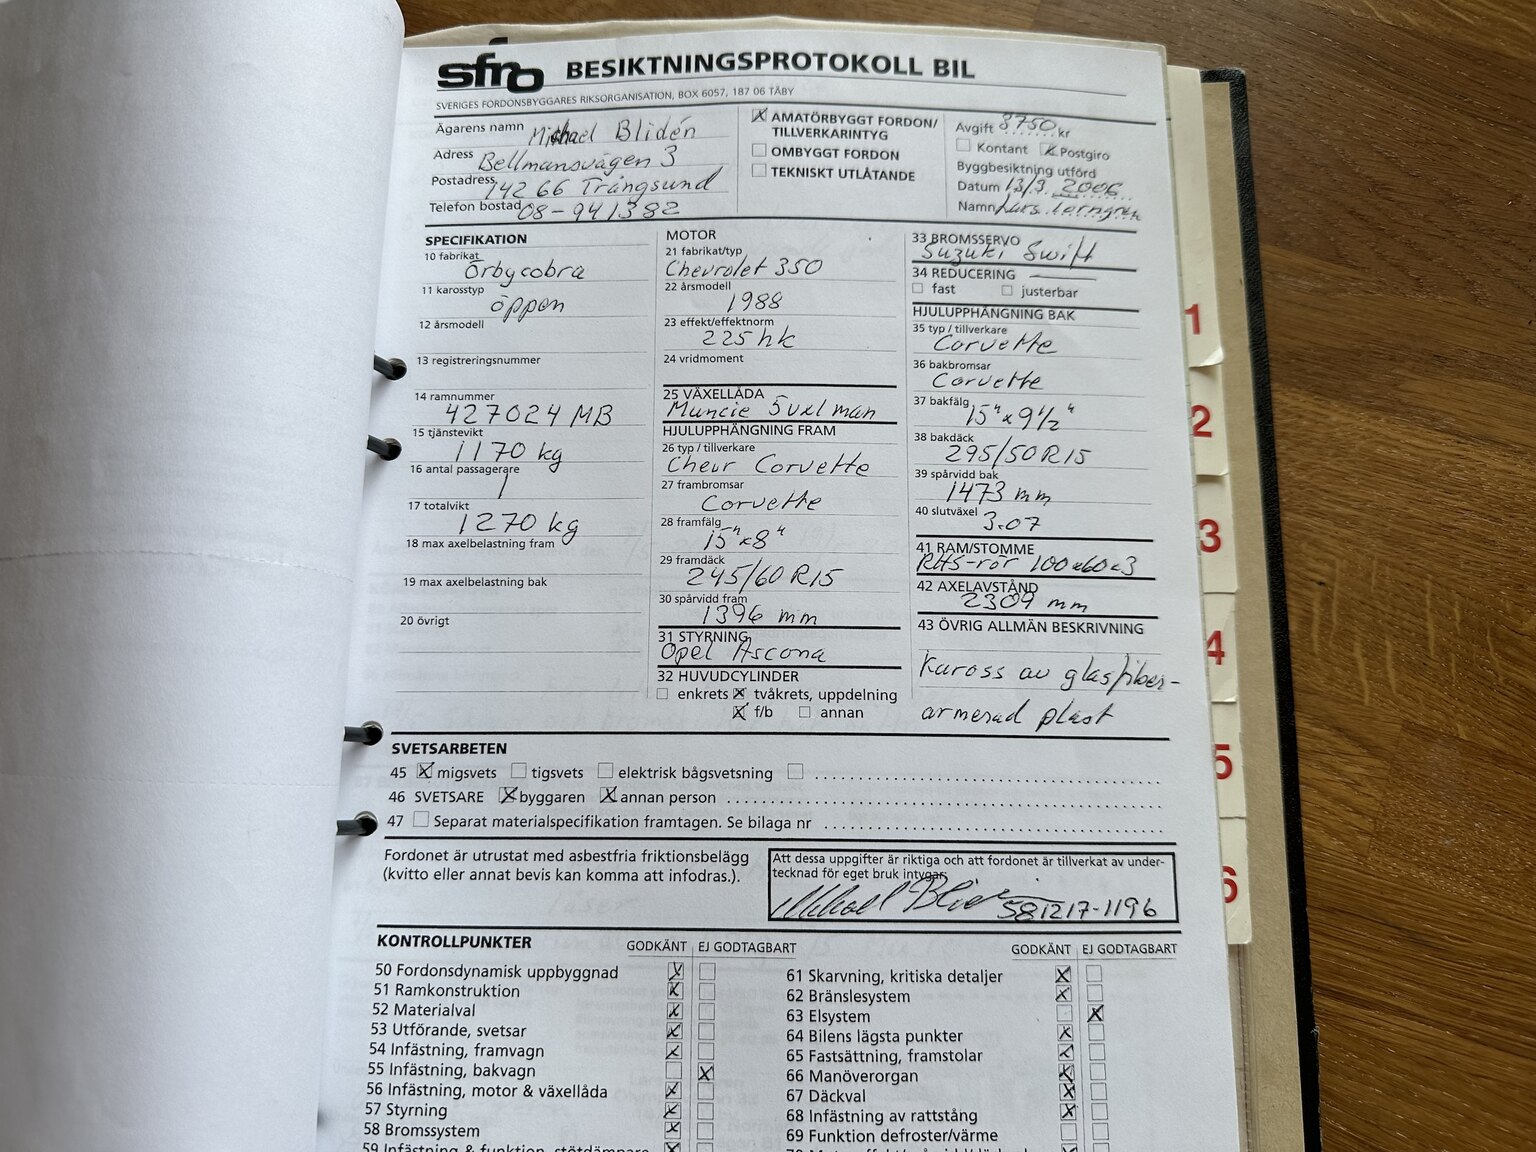 sfro BESIKTNINGSPROTOKOLL BIL
SVERIGES FORDONSBYGGARES RIKSORGANISATION, BOX 6057, 187 06 TÄBY
Ägarens namn Michael Blidén
Adress Bellmansvägen 3
Postadress 142 66 Trångsund
Telefon bostad 08-941382
X AMATÖRBYGGT FORDON/
TILLVERKARINTYG
OMBYGGT FORDON
TEKNISKT UTLÅTANDE
Avgift 8750 kr
Kontant X Postgiro
Byggbesiktning utförd
Datum 13/9 2006
Namn Lars
SPECIFIKATION
10 fabrikat
Örbycobra
11 karosstyp
öppen
12 årsmodell
13 registreringsnummer
14 ramnummer
427024 MB
15 tjänstevikt
1170 kg
16 antal passagerare
1
17 totalvikt
1270 kg
18 max axelbelastning fram
19 max axelbelastning bak
20 övrigt
MOTOR
21 fabrikat/typ
Chevrolet 350
22 årsmodell
1988
23 effekt/effektnorm
225 hk
24 vridmoment
25 VÄXELLÅDA
Muncie 5vxl man
HJULUPPHÄNGNING FRAM
26 typ / tillverkare
Chevr Corvette
27 frambromsar
Corvette
28 framfälg
15" x 8"
29 framdäck
245/60 R15
30 spårvidd fram
1396 mm
31 STYRNING
Opel Ascona
32 HUVUDCYLINDER
enkrets X tvåkrets, uppdelning
X f/b annan
33 BROMSSERVO
Suzuki Swift
34 REDUCERING
fast justerbar
HJULUPPHÄNGNING BAK
35 typ / tillverkare
Corvette
36 bakbromsar
Corvette
37 bakfälg
15" x 9 1/2"
38 bakdäck
295/50 R15
39 spårvidd bak
1473 mm
40 slutväxel
3.07
41 RAM/STOMME
RHS-rör 100x60x3
42 AXELAVSTÅND
2309 mm
43 ÖVRIG ALLMÄN BESKRIVNING
Kaross av glasfiber-
armerad plast
SVETSARBETEN
45 X migsvets tigsvets elektrisk bågsvetsning
46 SVETSARE X byggaren X annan person
47 Separat materialspecifikation framtagen. Se bilaga nr
Fordonet är utrustat med asbestfria friktionsbelägg
(kvitto eller annat bevis kan komma att infodras.).
Att dessa uppgifter är riktiga och att fordonet är tillverkat av under-
tecknad för eget bruk intygar
Michael Blidén 581217-1196
KONTROLLPUNKTER GODKÄNT EJ GODTAGBART
50 Fordonsdynamisk uppbyggnad X
51 Ramkonstruktion X
52 Materialval X
53 Utförande, svetsar X
54 Infästning, framvagn X
55 Infästning, bakvagn X
56 Infästning, motor & växellåda X
57 Styrning X
58 Bromssystem X
59 Infästning & funktion, stötdämpare X
GODKÄNT EJ GODTAGBART
61 Skarvning, kritiska detaljer X
62 Bränslesystem X
63 Elsystem X
64 Bilens lägsta punkter X
65 Fastsättning, framstolar X
66 Manöverorgan X
67 Däckval X
68 Infästning av rattstång X
69 Funktion defroster/värme
1
2
3
4
5
6